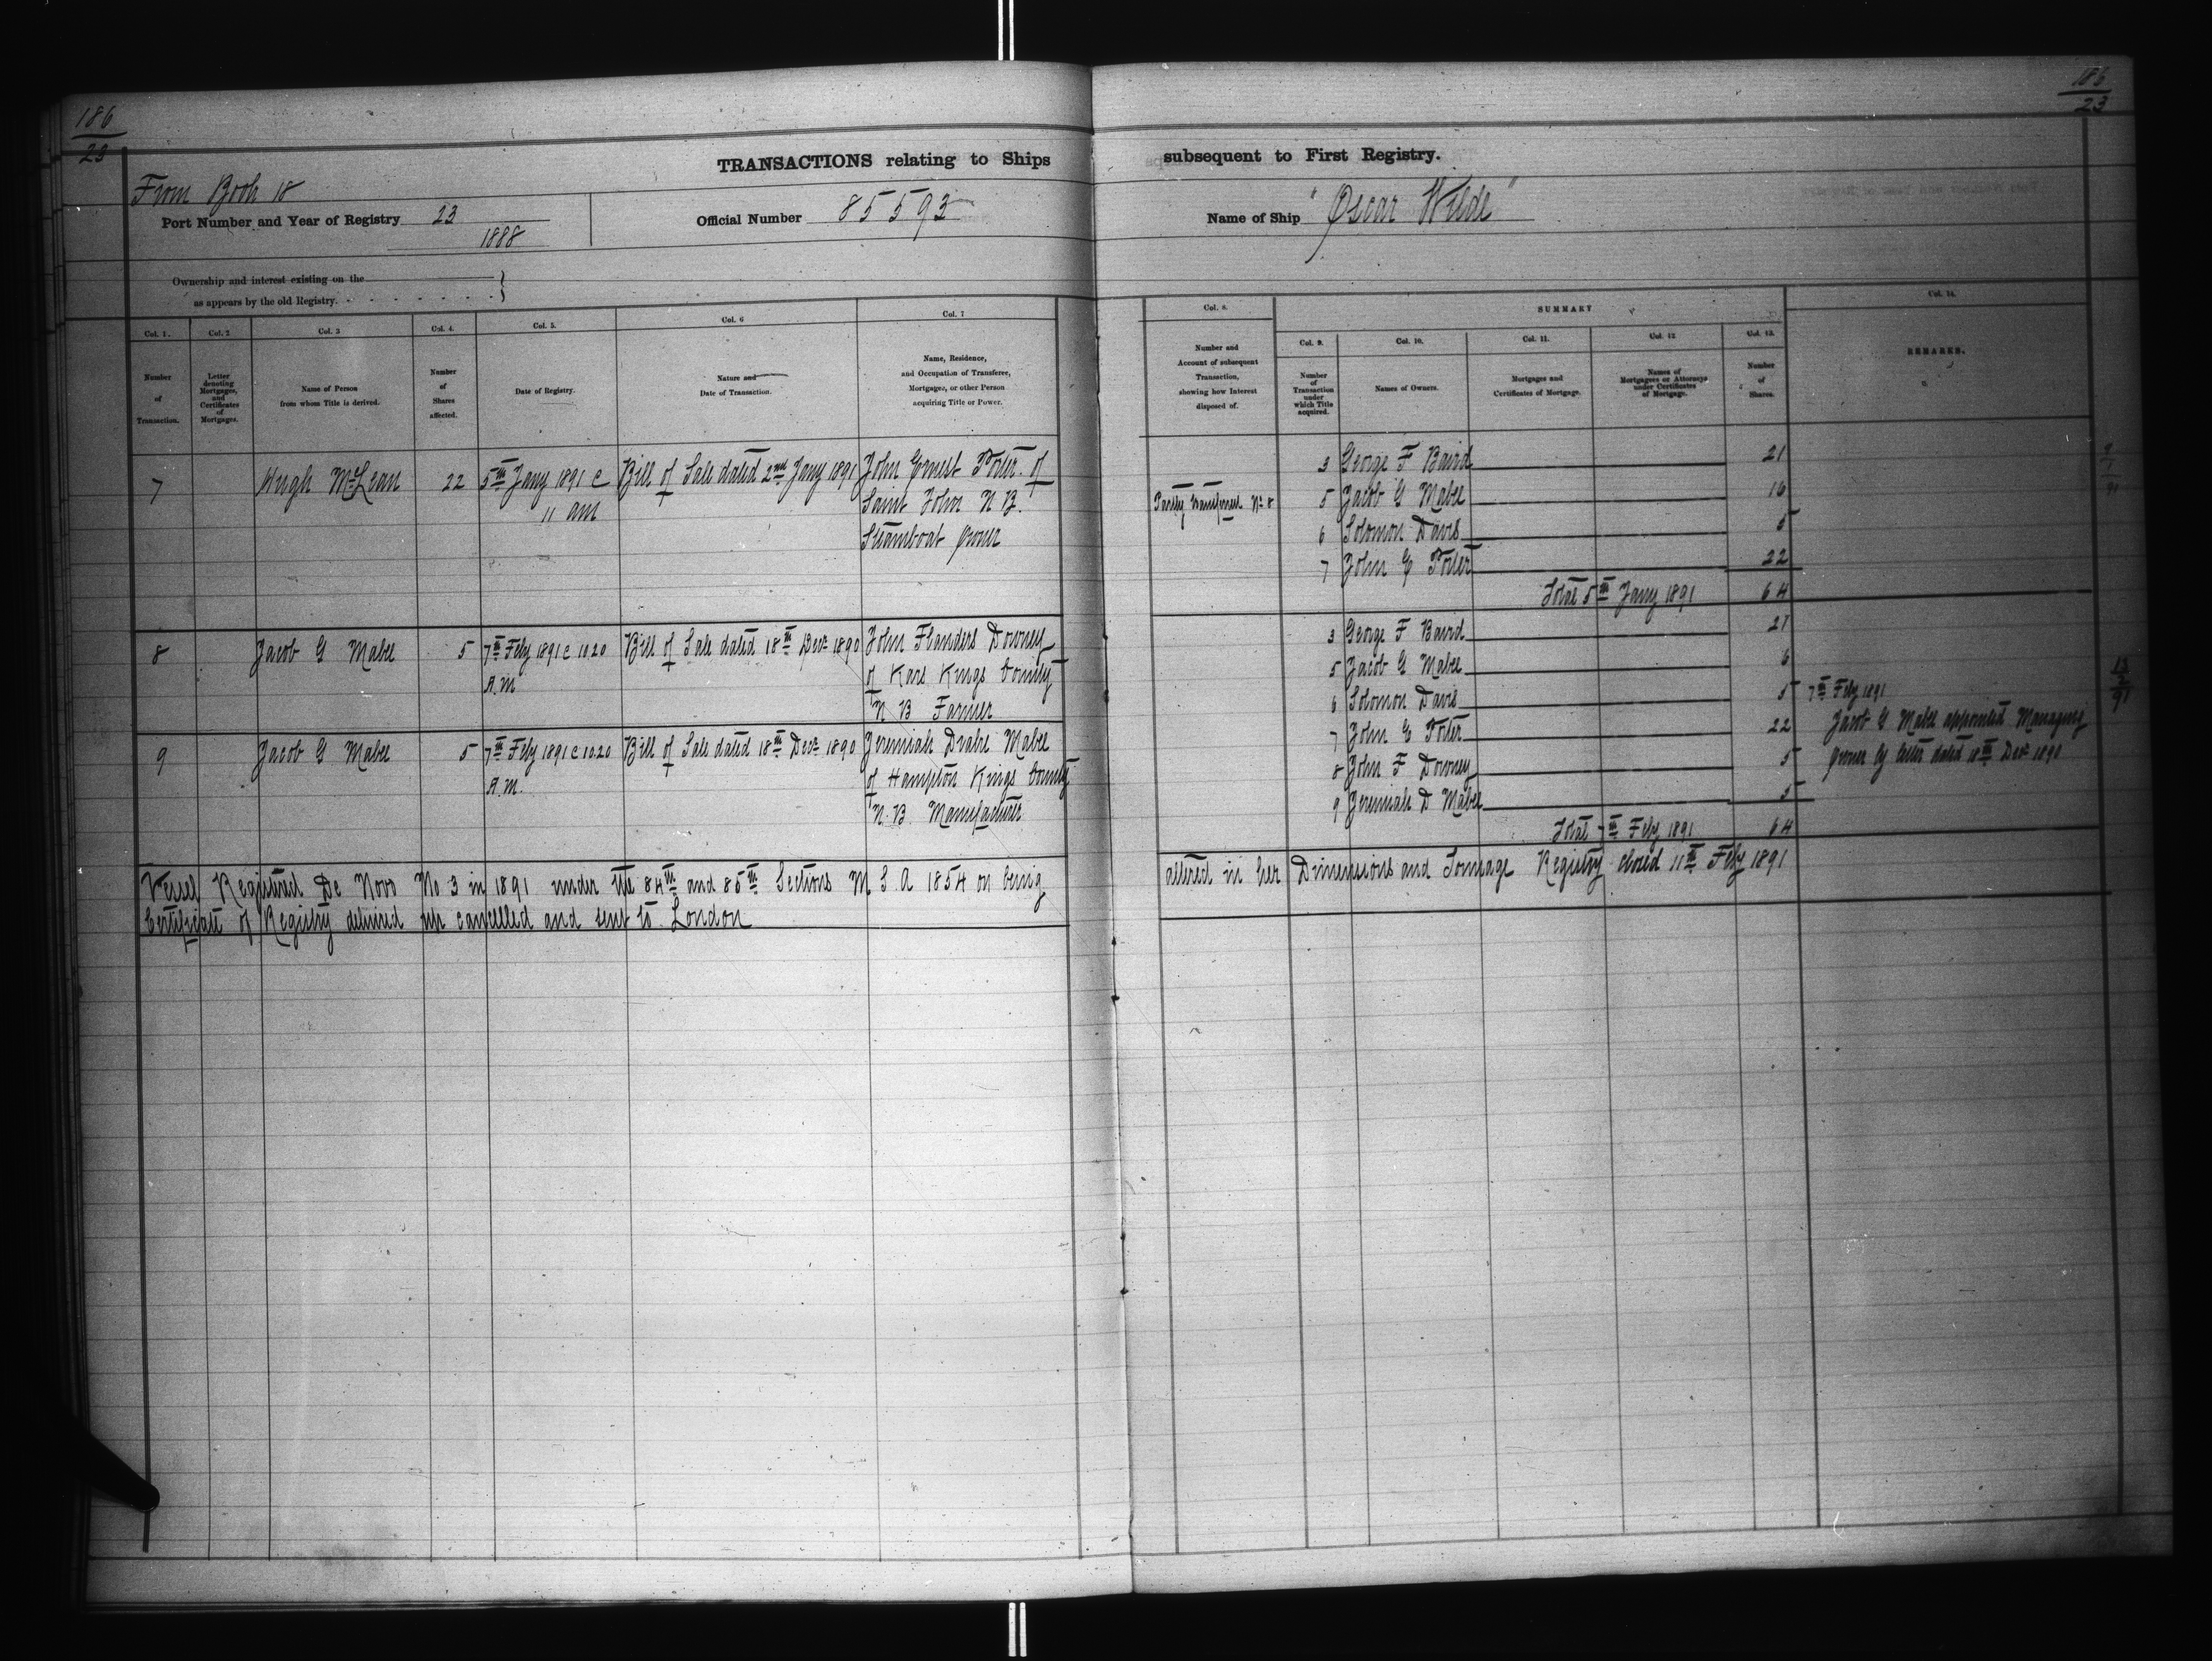 186
23
186
23
TRANSACTIONS relating to Ships subsequent to First Registry.
From Book 18
Port Number and Year of Registry 23
1888
Official Number 85593
Name of Ship "Oscar Wilde"
Ownership and interest existing on the
as appears by the old Registry.
Col. 1.
Number
of
Transaction.
Col. 2
Letter
denoting
Mortgages,
and
Certificates
of
Mortgages.
Col. 3
Name of Person
from whom Title is derived.
Col. 4.
Number
of
Shares
affected.
Col. 5.
Date of Registry.
Col. 6
Nature and
Date of Transaction.
Col. 7
Name, Residence,
and Occupation of Transferee,
Mortgagee, or other Person
acquiring Title or Power.
Col. 8.
Number and
Account of subsequent
Transaction,
showing how Interest
disposed of.
SUMMARY
Col. 9.
Number
of
Transaction
under
which Title
acquired.
Col. 10.
Names of Owners.
Col. 11.
Mortgages and
Certificates of Mortgage.
Col. 12
Names of
Mortgagees or Attorneys
under Certificates
of Mortgage.
Col. 13.
Number
of
Shares.
Col. 14.
REMARKS.
7 Hugh McLean 22 5th Jany 1891 @ Bill of Sale dated 2nd Jany 1891 John Ernest Porter of
11 am Saint John N B.
Steamboat Owner
Partly transferred No 8
3 George F Baird 21
5 Jacob G Mabee 16
6 Solomon Davis 5
7 John E Porter 22
Total 5th Jany 1891 64
8 Jacob G Mabee 5 7th Feby 1891 @ 10.20 Bill of Sale dated 18th Decr 1890 John Flanders Downey
A.M of Kars Kings County
N B Farmer
9 Jacob G Mabee 5 7th Feby 1891 @ 10.20 Bill of Sale dated 18th Decr 1890 Jeremiah Drake Mabee
A.M. of Hampton Kings County
N.B. Manufacturer
3 George F Baird 21
5 Jacob G Mabee 6
6 Solomon Davis 5
7 John E Porter 22
8 John F Downey 5
9 Jeremiah D Mabee 5
Total 7th Feby 1891 64
7th Feby 1891
Jacob G Mabee appointed Managing
Owner by letter dated 18th Decr 1890
13
2
91
Vessel Registered De Novo No 3 in 1891 under the 84th and 85th Sections M S A 1854 on being altered in her Dimensions and Tonnage Registry closed 11th Feby 1891
Certificate of Registry delivered up cancelled and sent to London